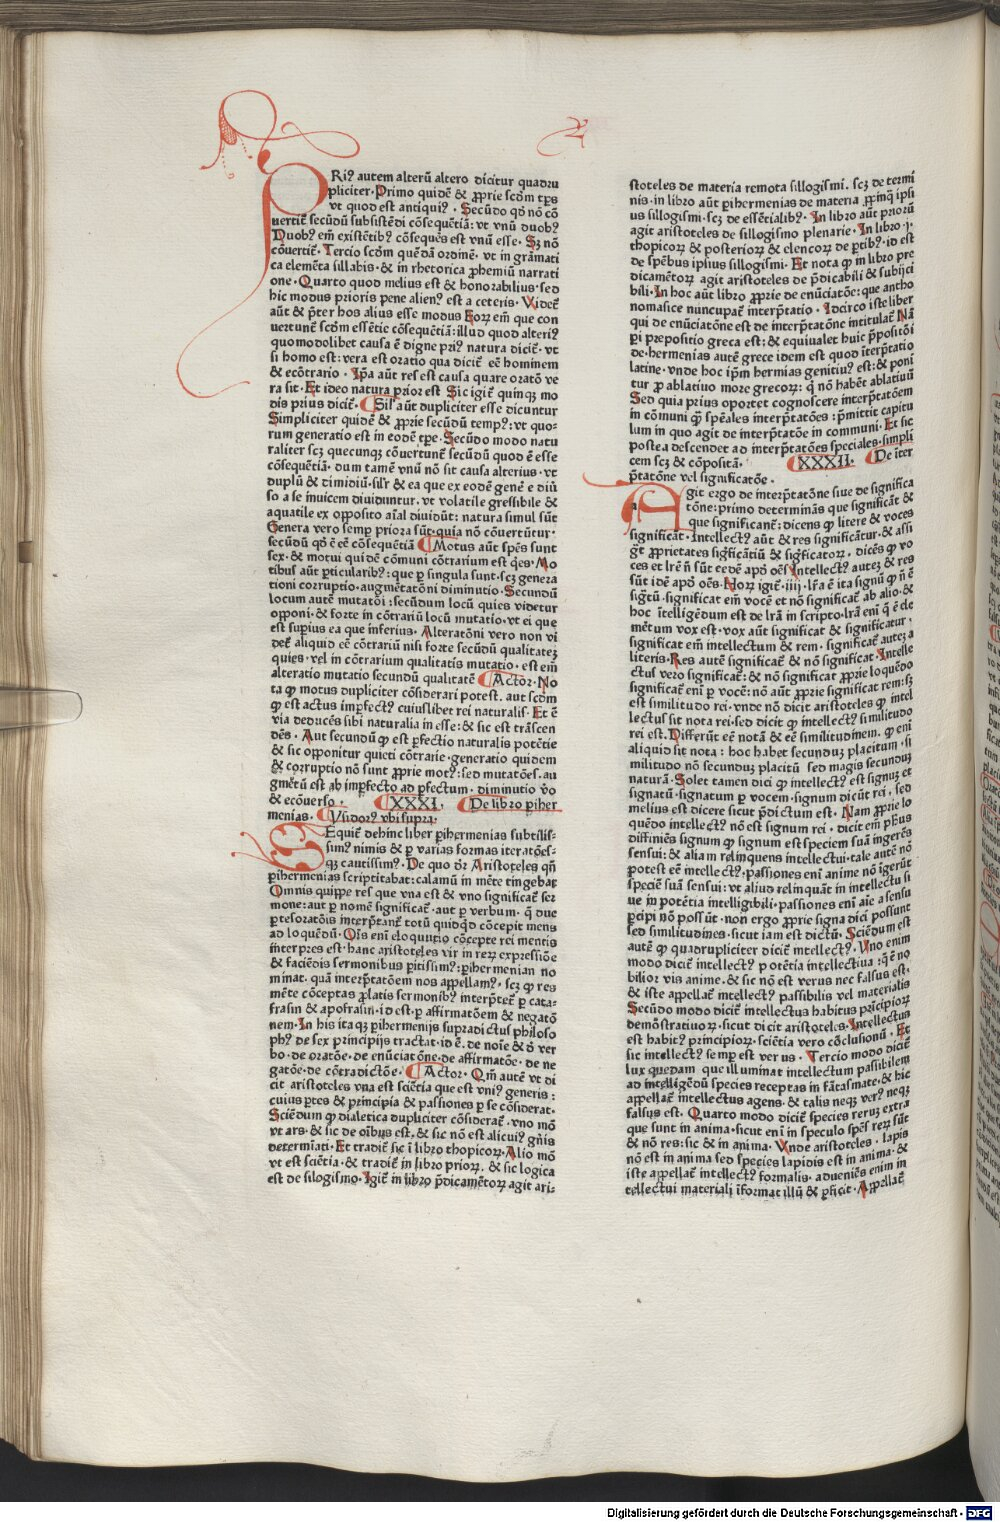 PRiꝰ autem alterũ altero dicitur quadru
pliciter·Primo quidẽ & ꝓprie scd̃m tp̃s
vt quod est antiquiꝰ · Secũdo qd̃ nõ cõ
uertit᷑ secũdũ subsistẽdi cõsequẽtiã: vt vnũ duobꝰ
Duobꝰ em̃ existẽtibꝰ cõsequẽs est vnũ esse · Sʒ nõ
cõuertit᷑· Tercio scd̃m quẽdã ordinẽ· vt in grãmati
ca elemẽta sillabis·& in rhetorica ꝓhemiũ narrati
one·Quarto quod melius est & honorabilius·sed
hic modus prioris pene alienꝰ est a ceteris· Videt᷑
aũt & p̃ter hos alius esse modus Eoꝝ em̃ que con
uertunt᷑ scd̃m essẽtie cõsequẽtiã:illud quod alteriꝰ
quomodolibet causa ẽ digne priꝰ natura dicit᷑· vt
si homo est: vera est oratio qua dicit᷑ eẽ hominem
& ecõtrario · Ip̃a aũt res est causa quare oratõ ve
ra sit· Et ideo natura prior est Sic igit᷑ quinqʒ mo
dis prius dicit᷑· Sil̃ aũt dupliciter esse dicuntur
Simpliciter quidẽ & ꝓprie secũdũ tempꝰ: vt quo-
rum generatio est in eodẽ tp̃e· Secũdo modo natu
raliter scʒ quecunqʒ cõuertunt᷑ secũdũ quod ẽ esse
cõsequẽtiã· dum tamẽ vnũ nõ sit causa alterius· vt
duplũ & dimidiũ·sil̃r & ea que ex eodẽ genẽ e diũ
so a se inuicem diuiduntur· vt volatile gressibile &
aquatile ex opposito aĩal diuidũt: natura simul sũt
Genera vero semꝑ priora sũt·quia nõ cõuertũtur·
secũdũ qd̃ ẽ eẽ cõsequẽtiã Motus aũt sp̃es sunt
sex·& motui quidẽ cõmuni cõtrarium est q̃es· Mo
tibus aũt ꝑticularibꝰ: que ꝑ singula sunt·scʒ genera
tioni corruptio·augmẽtatõni diminutio· Secundũ
locum autẽ mutatõi: secũdum locũ quies videtur
opponi·& forte in cõtrariũ locũ mutatio·vt ei que
est superius ea que inferius· Alteratõni vero non vi
det᷑ aliquid eẽ cõtrariũ nisi forte secũdũ qualitateʒ
quies·vel in cõtrarium qualitatis mutatio· est em̃
alteratio mutatio secundũ qualitatẽ Actor·No
ta ꝙ motus dupliciter cõsiderari potest· aut scd̃m
ꝙ est actus imꝑfectꝰ cuiuslibet rei naturalis· Et ẽ
via deducẽs sibi naturalia in esse:& sic est trãscen
dẽs· Aut secundũ ꝙ est ꝑfectio naturalis potẽtie
& sic opponitur quieti cõtrarie·generatio quidem
& corruptio nõ sunt ꝓprie motꝰ:sed mutatões· au
gmẽtũ est ab imꝑfecto ad ꝑfectum· diminutio ṽo
& ecõuerso · XXXI· De libro ꝑiher
menias· Ysidorꝰ vbi supra·
SEquit᷑ dehinc liber ꝑihermenias subtilis-
simꝰ nimis & ꝑ varias formas iteratões-
qʒ cautissimꝰ· De quo d̃r Aristoteles qñ
ꝑihermenias scriptitabat:calamũ in mẽte tingebat
Omnis quippe res que vna est & vno significat᷑ ser
mone:aut ꝑ nomẽ significat᷑ ·aut ꝑ verbum· q̃ due
ꝑtes oratõis interp̃tant᷑ totũ quidqd̃ cõcepit mens
ad loquẽdũ· Oĩs eni eloquutio cõcepte rei mentis
interpres est·hanc aristoteles vir in reꝝ expressiõe
& faciẽdis sermonibus ꝑitissimꝰ:ꝑihermenian no
minat· quã interp̃tatõem nos appellamꝰ· scʒ ꝙ res
mẽte cõceptas ꝓlatis sermonibꝰ interp̃tet᷑ ꝑ cata-
frasin & apofrasin·id est·ꝑ affirmatõem & negatõ
nem·In his itaqʒ ꝑihermenijs supradictus philoso
phꝰ de sex principijs tractat·id ẽ· de noĩe & d̃ ver
bo·de oratõe·de enũciatõne·de affirmatõe·de ne
gatõe·de cõtradictõe· Actor· Qm̃ autẽ vt di
cit aristoteles vna est sciẽtia que est vniꝰ generis:
cuius ꝑtes & principia & passiones ꝑ se cõsiderat·
Sciẽdum ꝙ dialetica dupliciter cõsiderat᷑· vno mõ
vt ars·& sic de oĩbus est·& sic nõ est alicuiꝰ gñis
determiati· Et tradit᷑ sic ĩ libro thopicoꝝ·Alio mõ
vt est sciẽtia·& tradit᷑ in libro prioꝝ·& sic logica
est de silogismo·Igit᷑ in libro p̃dicamẽtoꝝ agit ari-
stoteles de materia remota sillogismi· scʒ de termi
nis·in libro aũt ꝑihermenias de materia ꝓpinq̃ ipsi
us sillogismi·scʒ de essẽtialibꝰ· In libro aũt prioꝝ
agit aristoteles de sillogismo plenarie· In libro ·j·
thopicoꝝ & posterioꝝ & elencoꝝ de ꝑtibꝰ·id est
de sp̃ebus ipsius sillogismi· Et nota ꝙ in libro pre
dicamẽtoꝝ agit aristoteles de p̃dicabili & subijci
bili·In hoc aũt libro ꝓprie de enũciatõe: que antho
nomasice nuncupat᷑ interp̃tatio · Idcirco iste liber
qui de enũciatõne est de interp̃tatõne intitulat᷑ Nã
ꝑi prepositio greca est:& equiualet huic p̃positõi
de·hermenias autẽ grece idem est quod ĩterp̃tatio
latine·vnde hoc ip̃m hermias genitiuꝰ est:& poni
tur ꝓ ablatiuo more grecoꝝ: q̃ nõ habẽt ablatiuũ
Sed quia prius oportet cognoscere interp̃tatõem
in cõmuni q̃ sp̃eales interp̃tatões : p̃mittit capitu
lum in quo agit de interp̃tatõe in communi· Et sic
postea descendet ad interp̃tatões speciales·simpli
cem scʒ & cõpositã· XXXII· De iter
p̃tatõne vel significatõe ·
Agit ergo de interp̃tatõne siue de significa
tõne: primo determinãs que significãt &
que significant᷑: dicens ꝙ litere & voces
significãt·Intellectꝰ aũt & res significãtur·& assi
gt᷑ ꝓprietates sig̃ficãtiũ & sig̃ficatoꝝ · dicẽs ꝙ vo
ces et lr̃e ñ sũt eedẽ apd̃ oẽs Intellectꝰ auteʒ & res
sũt idẽ apd̃ oẽs·Noꝝ igit᷑ ·iiij· lr̃a ẽ ita signũ ꝙ ñ ẽ
sig̃tũ·significat em̃ vocẽ et nõ significat᷑ ab alio·&
hoc ĩtelligẽdum est de lr̃a in scripto·lr̃a enĩ q̃ ẽ ele
mẽtum vox est·vox aũt significat & significatur·
significat em̃ intellectum & rem· significat᷑ auteʒ a
literis·Res autẽ significat᷑ & nõ significat·Intelle
ctus vero significat᷑:& nõ significat ꝓprie loquẽdo
significat᷑ enĩ ꝑ vocẽ: nõ aũt ꝓprie significat rem:sʒ
est similitudo rei·vnde nõ dicit aristoteles ꝙ intel
lectus sit nota rei·sed dicit ꝙ intellectꝰ similitudo
rei est·Differũt eẽ notã & eẽ similitudinem· ꝙ enĩ
aliquid sit nota : hoc habet secunduʒ placitum· si
militudo nõ secunduʒ placitũ sed magis secunduʒ
naturã· Solet tamen dici ꝙ intellectꝰ est signuʒ et
signatũ·signatum ꝑ vocem·signum dicũt rei · sed
melius est dicere sicut p̃dictum est· Nam ꝓprie lo
quẽdo intellectꝰ nõ est signum rei · dicit em̃ ph̃us
diffiniẽs signum ꝙ signum est speciem suã ingerẽs
sensui:& aliam relinquens intellectui·tale autẽ nõ
potest eẽ intellectꝰ·passiones enĩ anime nõ ĩgerũt
speciẽ suã sensui: vt aliud relinquãt in intellectu si
ue in potẽtia intelligibili·passiones enĩ aĩe a sensu
ꝑcipi nõ possũt·non ergo ꝓprie signa dici possunt
sed similitudines·sicut iam est dictũ· Sciẽdum est
autẽ ꝙ quadrupliciter dicit᷑ intellectꝰ· Vno enim
modo dicit᷑ intellectꝰ potẽtia intellectiua :q̃ ẽ no
bilior vis anime·& sic nõ est verus nec falsus est·
& iste appellat᷑ intellectꝰ passibilis vel materialis
Secũdo modo dicit᷑ intellectus habitus principioꝝ
demõstratiuoꝝ·sicut dicit aristoteles·Intellectus
est habitꝰ principioꝝ·sciẽtia vero cõclusionũ· Et
sic intellectꝰ semꝑ est verus · Tercio modo dicit᷑
lux quedam que illuminat intellectum passibilem
ad intelligẽdũ species receptas in fãtasmate·& hic
appellat᷑ intellectus agens·& talis neqʒ verꝰ neqʒ
falsus est· Quarto modo dicit᷑ species reruʒ extra
que sunt in anima·sicut enĩ in speculo sp̃es reꝝ sũt
& nõ res: sic & in anima· Vnde aristoteles · lapis
nõ est in anima sed species lapidis est in anima·&
iste appellat᷑ intellectꝰ formalis·adueniẽs enim in
tellectui materiali ĩformat illũ & ꝑficit·Appellat᷑
Digitalisierung gefördert durch die Deutsche Forschungsgemeinschaft - DFG